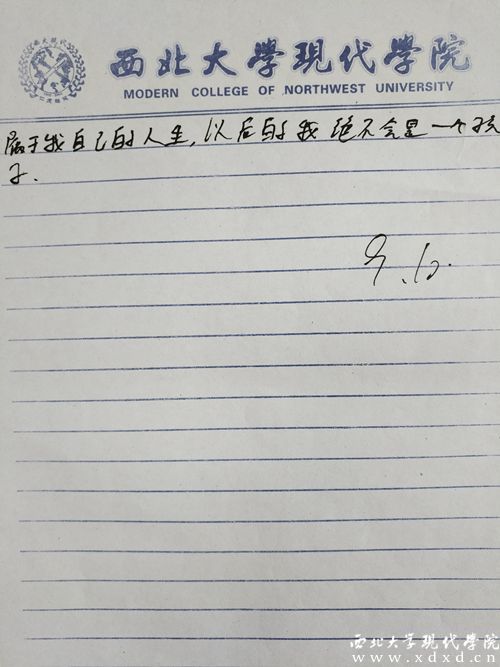 西北大学現代学院
MODERN COLLEGE OF NORTHWEST UNIVERSITY
属于我自己的人生,以后的我绝不会是一个孩
子.
9.10.
西北大学现代学院
www.xdxd.cn